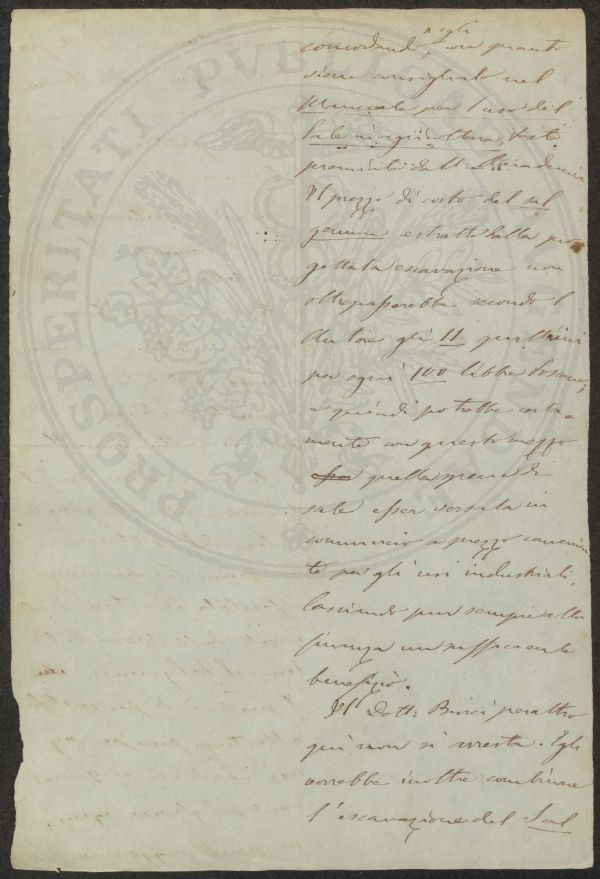 egli
concordando, con quanto
viene consigliato nel
Manuale per l'uso del
Sale in agricoltura, teste
premiato dall' Accademia
Il prezzo di costo del sal
gemma estratto dalla pro
gettata escavazione non
oltrepasserebbe secondo l'
Autore gli 11 quattrini
per ogni 100 libbre toscane;
e quindi potrebbe certa=
mente con questo mezzo
quella specie di
sale esser versata in
commercio a prezzo convenien
te per gli usi industriali,
lasciando pur sempre alla
finanza un sufficiente
benefizio.
Il Dott: Busci peraltro
qui non si arresta. Egli
vorrebbe inoltre combinare
l'escavazione del Sal
PROSPERITATI PVBLICAE AVGENDAE